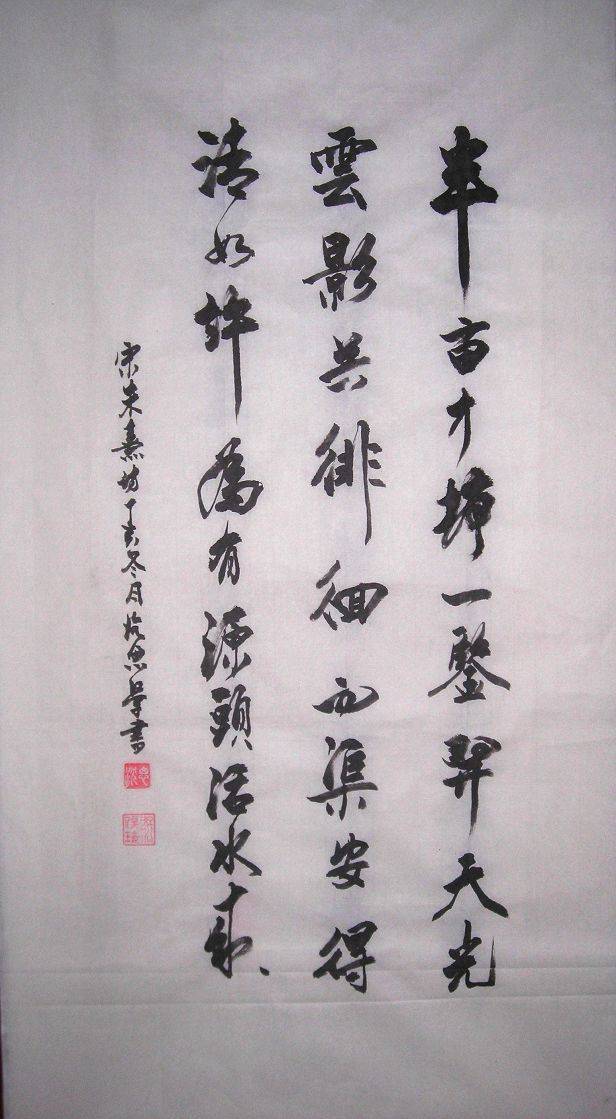 半亩方塘一鑒開天光
雲影共徘徊问渠安得
清如許為有源頭活水來
宋朱熹诗丁亥冬月思書